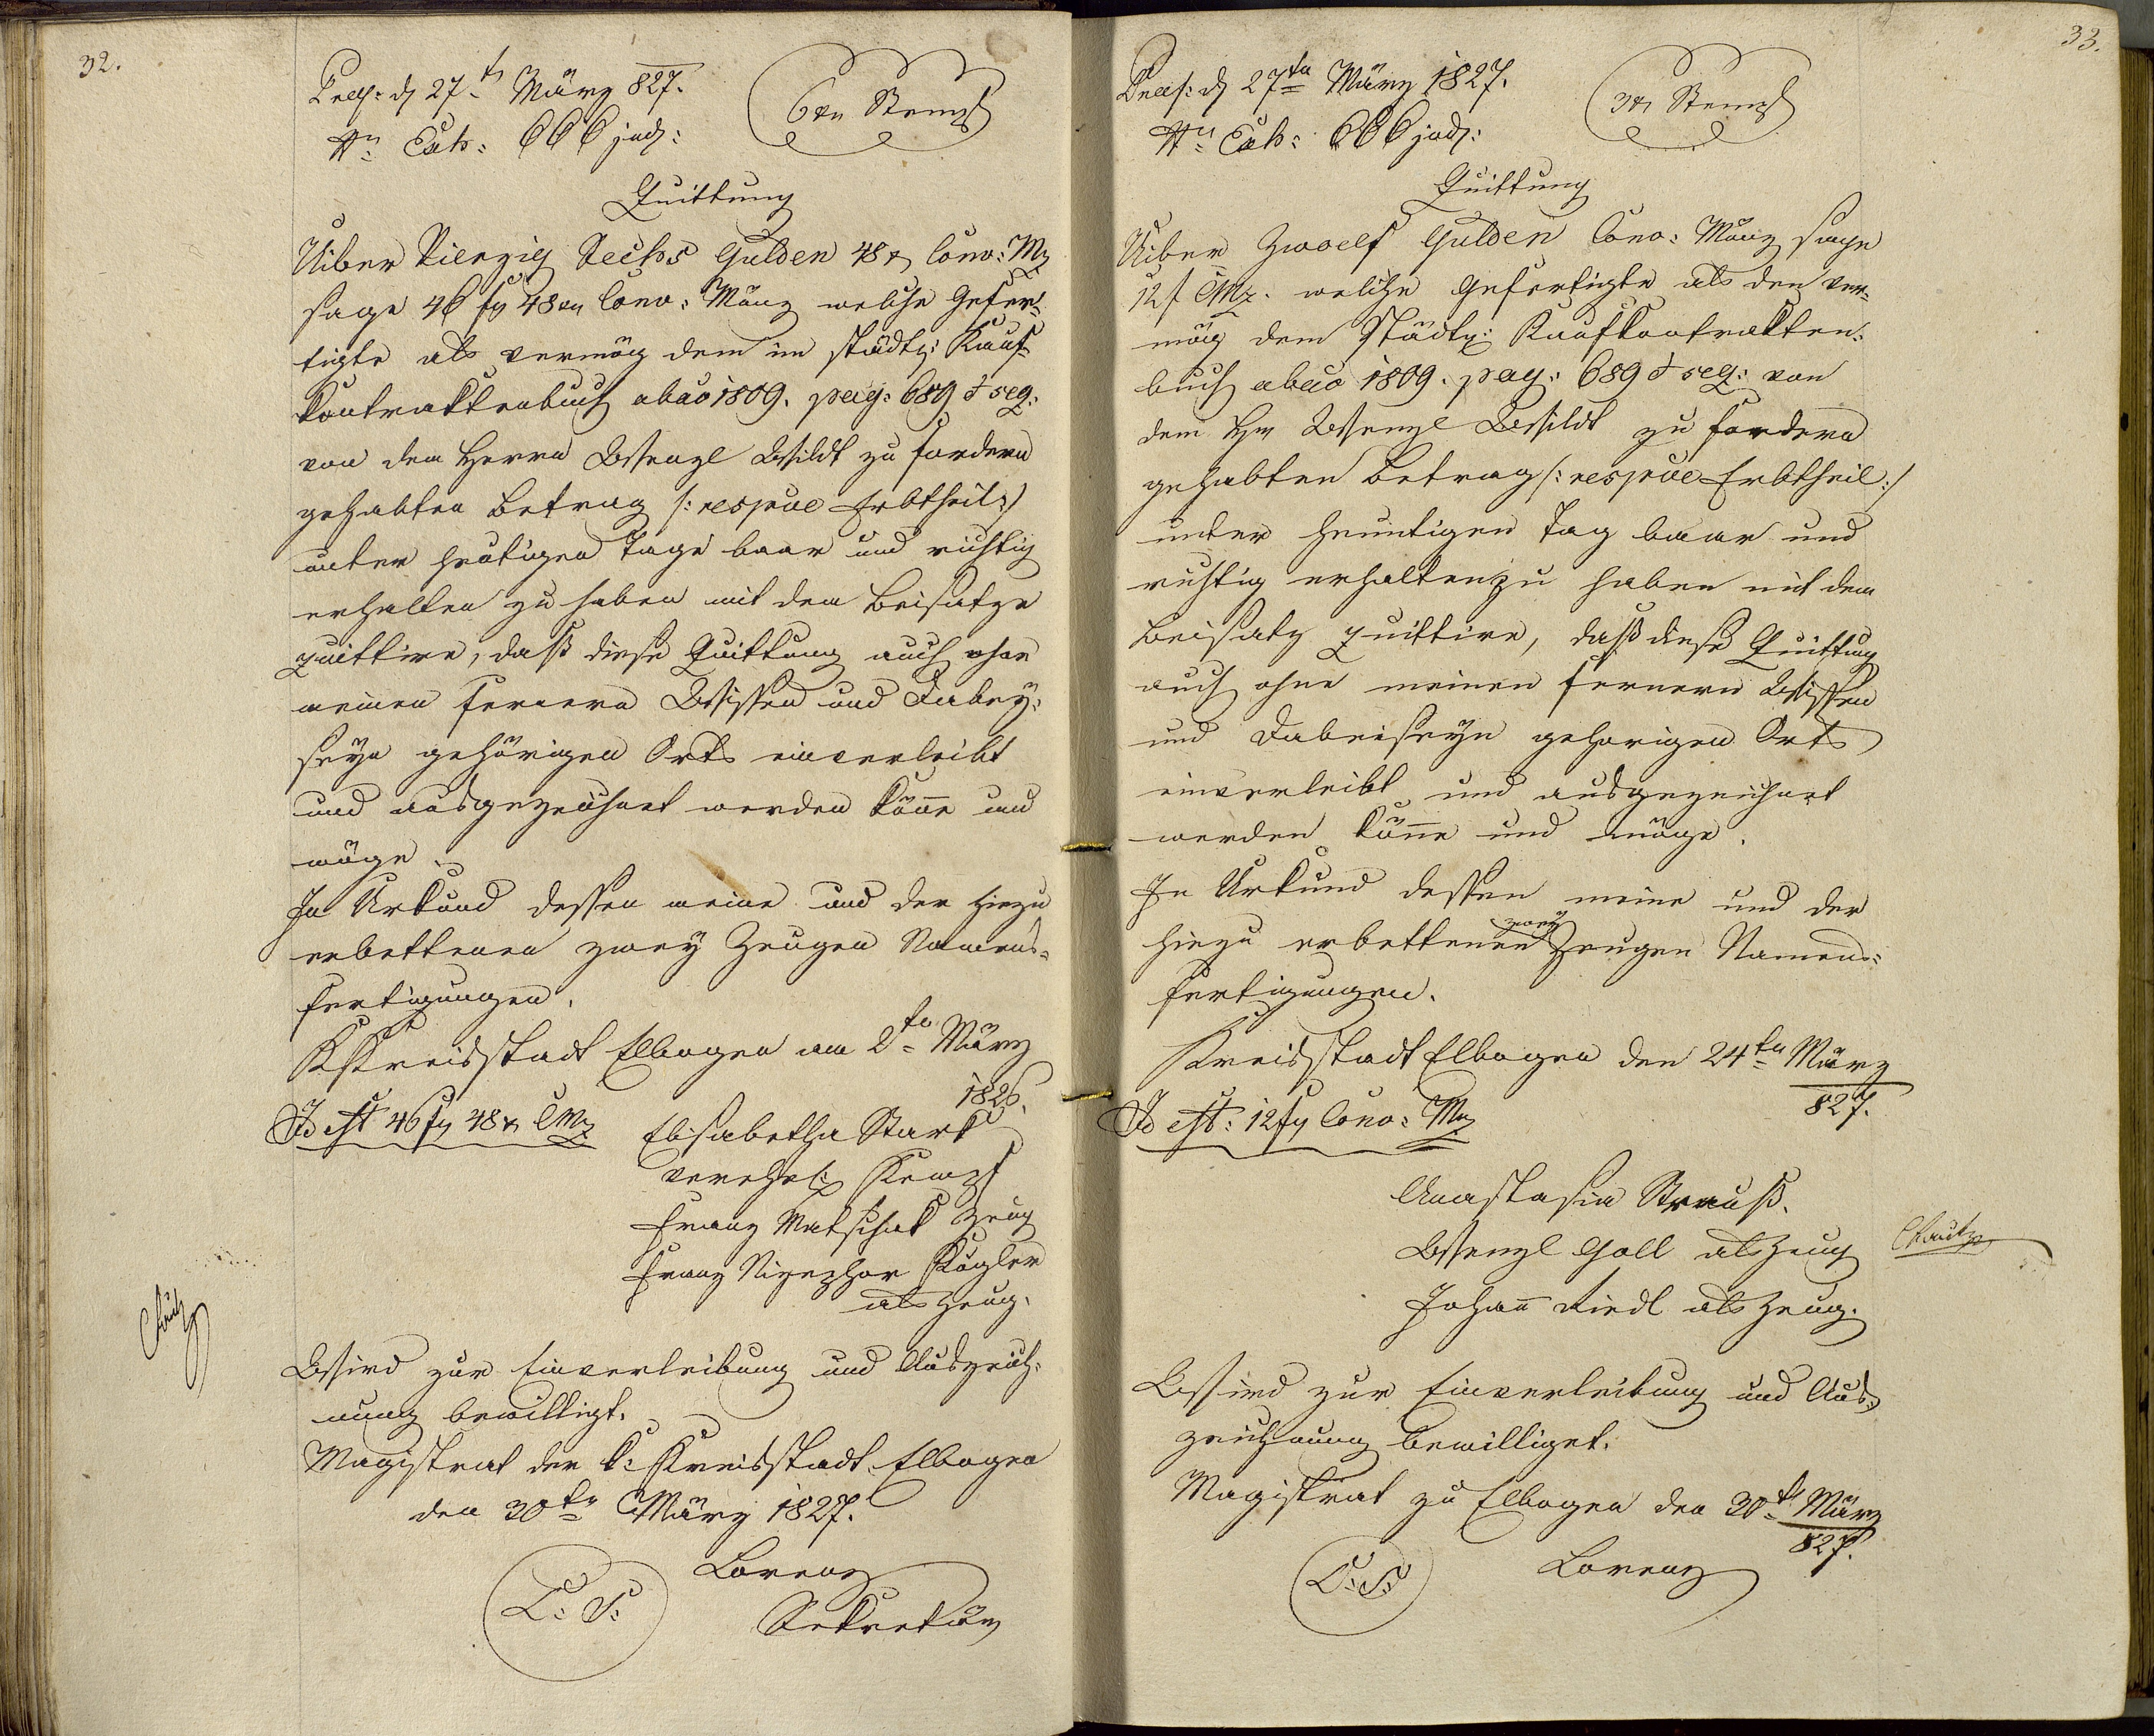 32.
Präs: d 27t März 827.
6 xr Stempl
Nro Exh: 666 jud:
Quittung
Uiber Vierzig Sechs Gulden 48 x Conv: Mz
sage 46 fl 48 xr Conv: Münz welche Gefer-
tigte als vermög dem im städt: Kauf-
kontraktenbuch ab ao 1809. pag: 689 & seq:
von dem Herrn Wenzl Wildt zu fordern
gehabten Betrag /: respve Erbtheil :/
unter heutigen Tage baar und richtig
erhalten zu haben mit dem Beisatze
quittire, daß diese Quittung auch ohne
meinen fernern Wissen und Dabey-
seyn gehörigen Orts einverleibt
und ausgezeichnet werden könne und
möge.
In Urkund dessen meine und der hiezu
erbettenen zwey Zeugen Namens-
fertigungen.
K Kreisstadt Elbogen am 2tn März
1826.
Id est 46 fl 48 x CMz
Elisabetha Stark
verehel: Kempf
Franz Matschak Zeug
Franz Kögler
als Zeug.
Wird zur Einverleibung und Auszeich-
nung bewilligt.
Magistrat der k: Kreisstadt Elbogen
den 30tn März 1827.
L: S:
Lorenz
Sekretär
33.
Präs: d 27tn März 1827.
3 xr Stempl
Nro Exh: 666 jud:
Quittung
Uiber Zwoelf Gulden Conv: Münz sage
12 f CMz. welche Gefertigte als den ver-
mög dem Städt: Kaufkontrakten-
buch ab ao 1809. pag: 689 & seq: von
dem Hr Wenzl Wildt zu fordern
gehabten Betrag /: respve Erbtheil :/
unter heuntigen Tag baar und
richtig erhalten zu haben mit dem
Beisatz quittire, daß diese Quittung
auch ohne meinen fernern Wissen
und Dabeiseyn gehorigen Orts
einverleibt und ausgezeichnet
werden könne und möge.
In Urkund dessen meine und der
hiezu erbettenen zwey Zeugen Namens-
fertigungen.
Kreisstadt Elbogen den 24tn März
827.
Id est: 12 fl Conv: Mz
Anastasia Strauß.
Wenzl Goll als Zeug
Johann Riedl als Zeug.
Wird zur Einverleibung und Aus-
zeichnung bewilliget.
Magistrat zu Elbogen den 30tn März
827.
L: S:
Lorenz